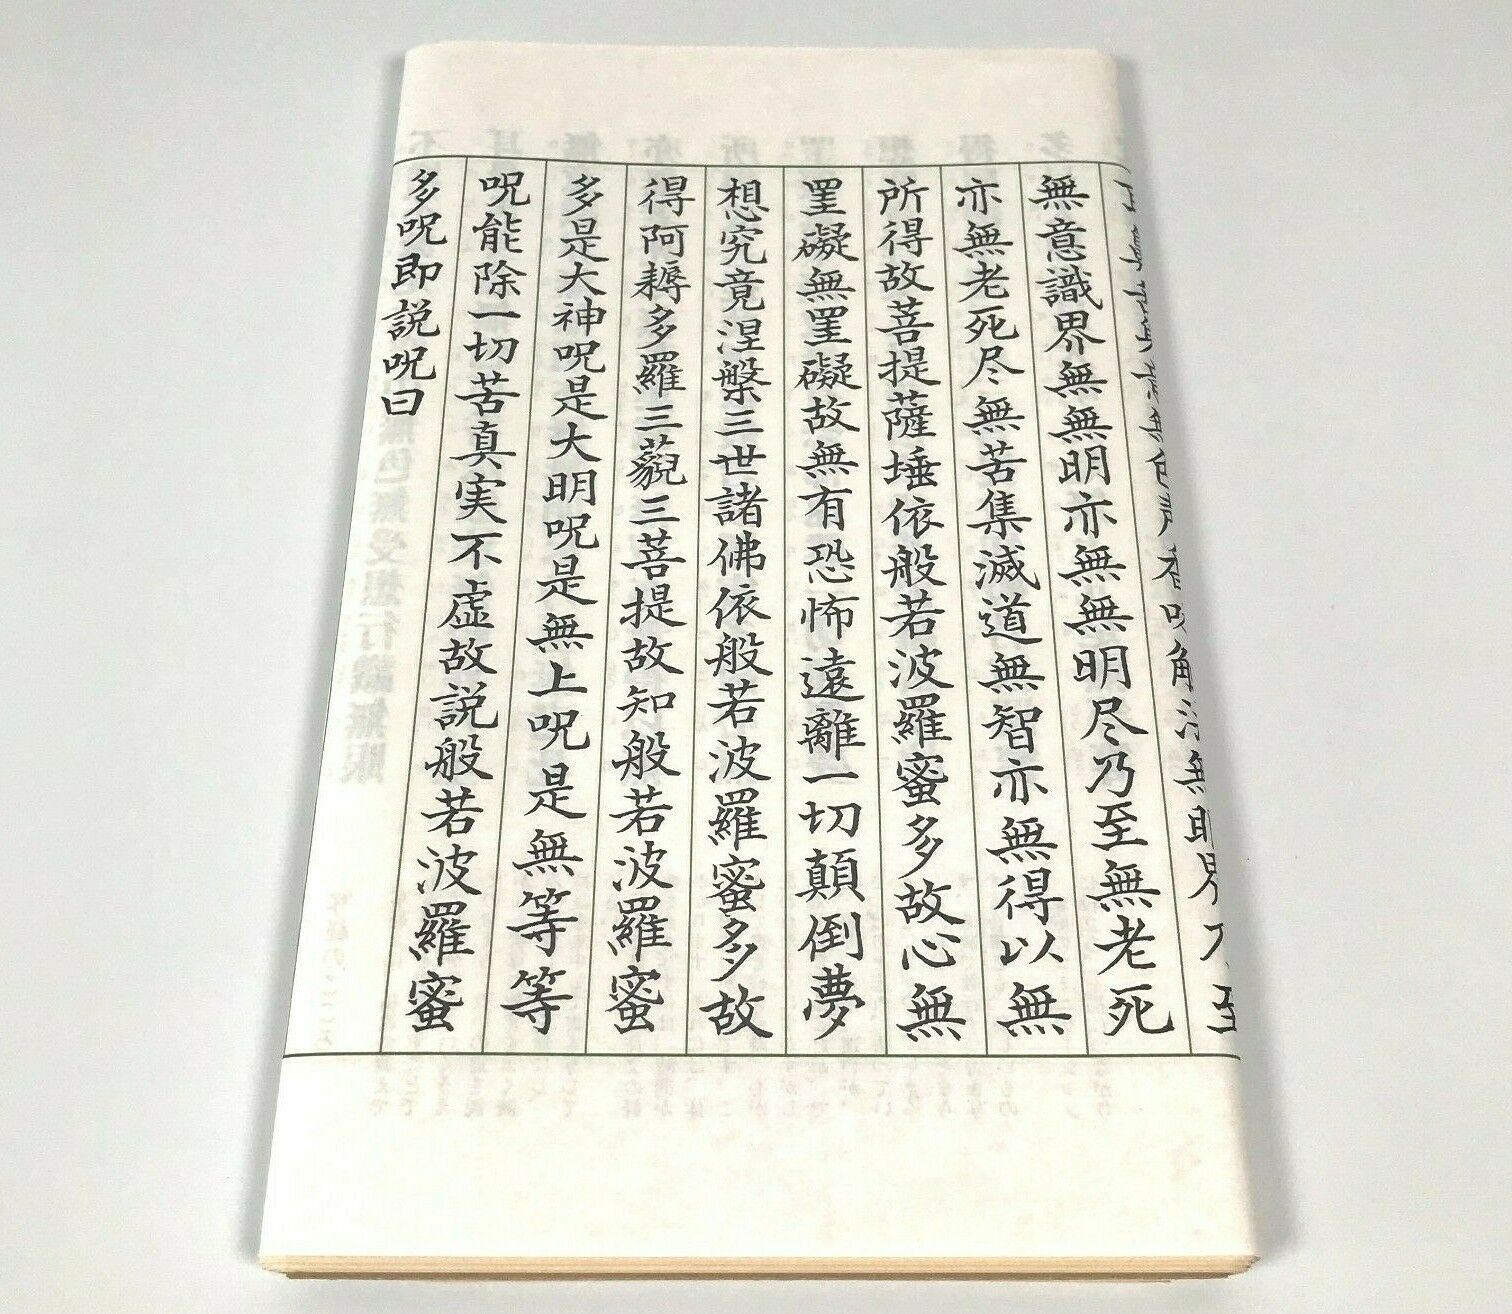 意無色声香味触法無眼界乃至
無意識界無無明亦無無明尽乃至無老死
亦無老死尽無苦集滅道無智亦無得以無
所得故菩提薩埵依般若波羅蜜多故心無
罣礙無罣礙故無有恐怖遠離一切顛倒夢
想究竟涅槃三世諸佛依般若波羅蜜多故
得阿耨多羅三藐三菩提故知般若波羅蜜
多是大神呪是大明呪是無上呪是無等等
呪能除一切苦真実不虚故説般若波羅蜜
多呪即説呪曰